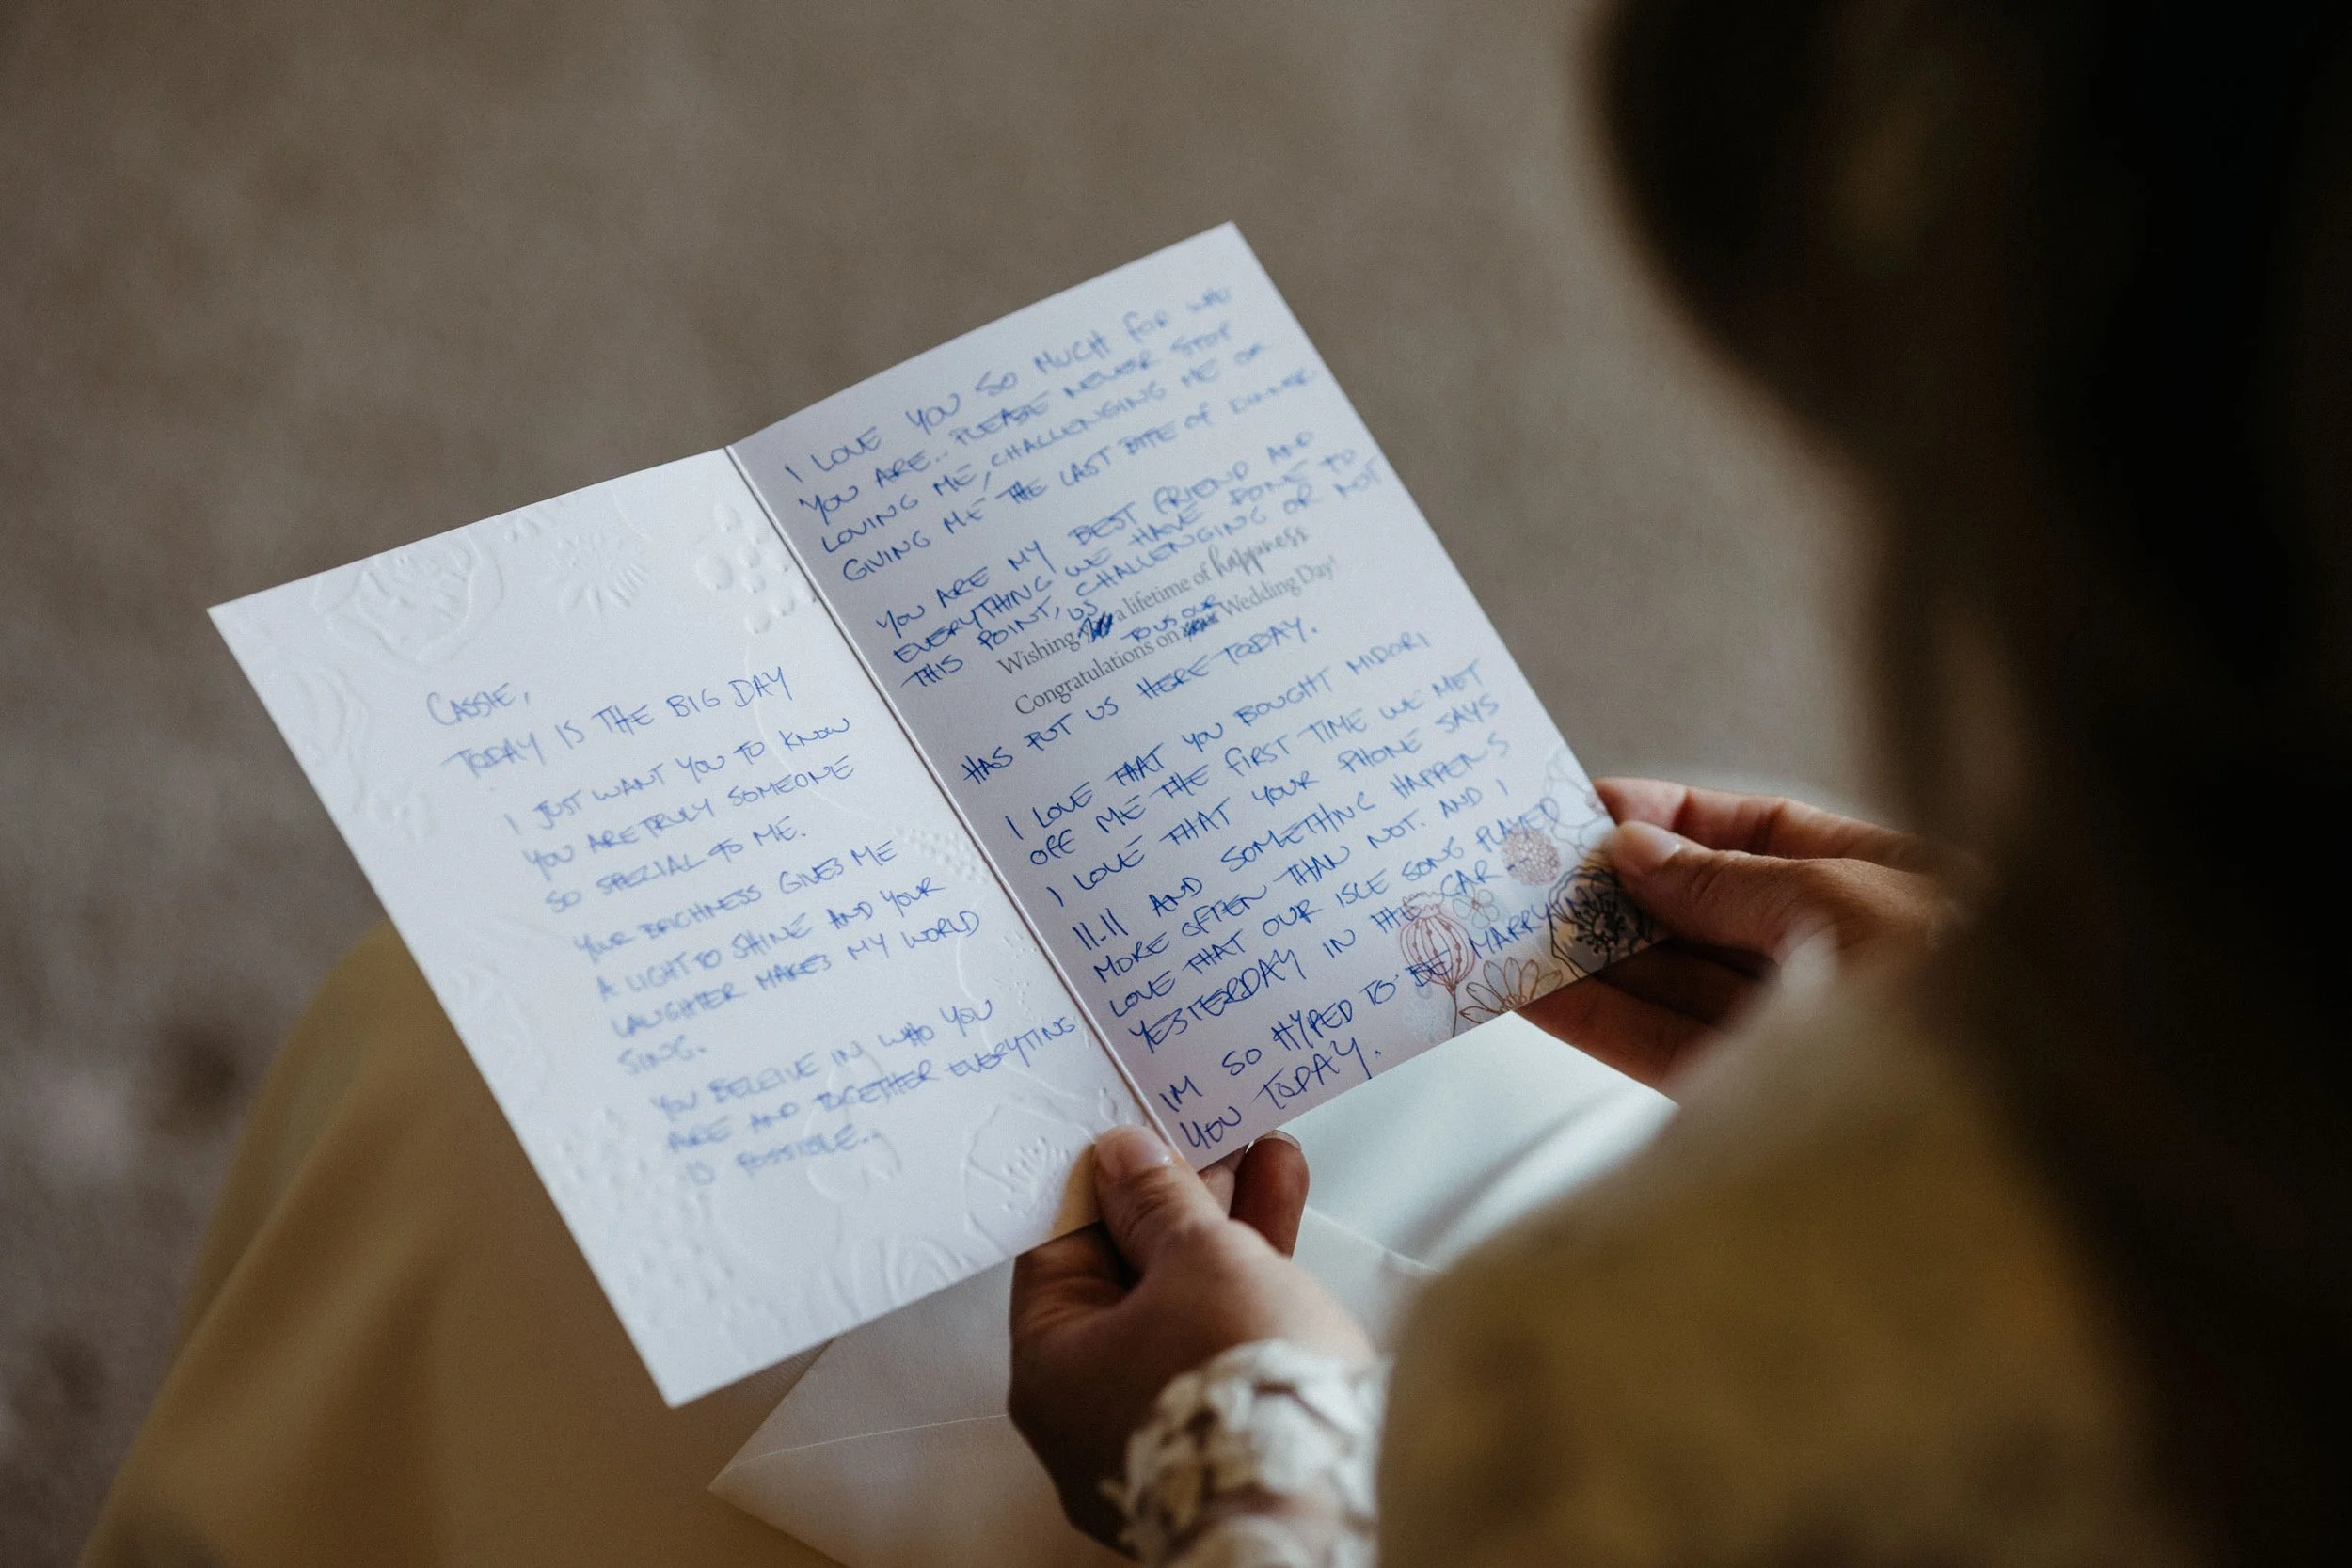 CASSIE,
TODAY IS THE BIG DAY
I JUST WANT YOU TO KNOW
YOU ARE TRULY SOMEONE
SO SPECIAL TO ME.
YOUR BRIGHNESS GIVES ME
A LIGHT TO SHINE AND YOUR
LAUGHTER MAKES MY WORLD
SING.
YOU BELEIVE IN WHO YOU
ARE AND TOGETHER EVERYTING
IS POSSIBLE..
I LOVE YOU SO MUCH FOR WHO
YOU ARE.. PLEASE NEVER STOP
LOVING ME, CHALLENGING ME OR
GIVING ME THE LAST BITE OF DINNER
YOU ARE MY BEST FRIEND AND
EVERYTHING WE HAVE DONE TO
THIS POINT, CHALLENGING OR NOT
Wishing US a lifetime of happiness
Congratulations TO US on OUR Wedding Day!
HAS PUT US HERE TODAY.
I LOVE THAT YOU BOUGHT MIDORI
OFF ME THE FIRST TIME WE MET
I LOVE THAT YOUR PHONE SAYS
11.11 AND SOMETHING HAPPENS
MORE OFTEN THAN NOT. AND I
LOVE THAT OUR ISLE SONG PLAYED
YESTERDAY IN THE CAR --
IM SO HYPED TO BE MARRYING
YOU TODAY.